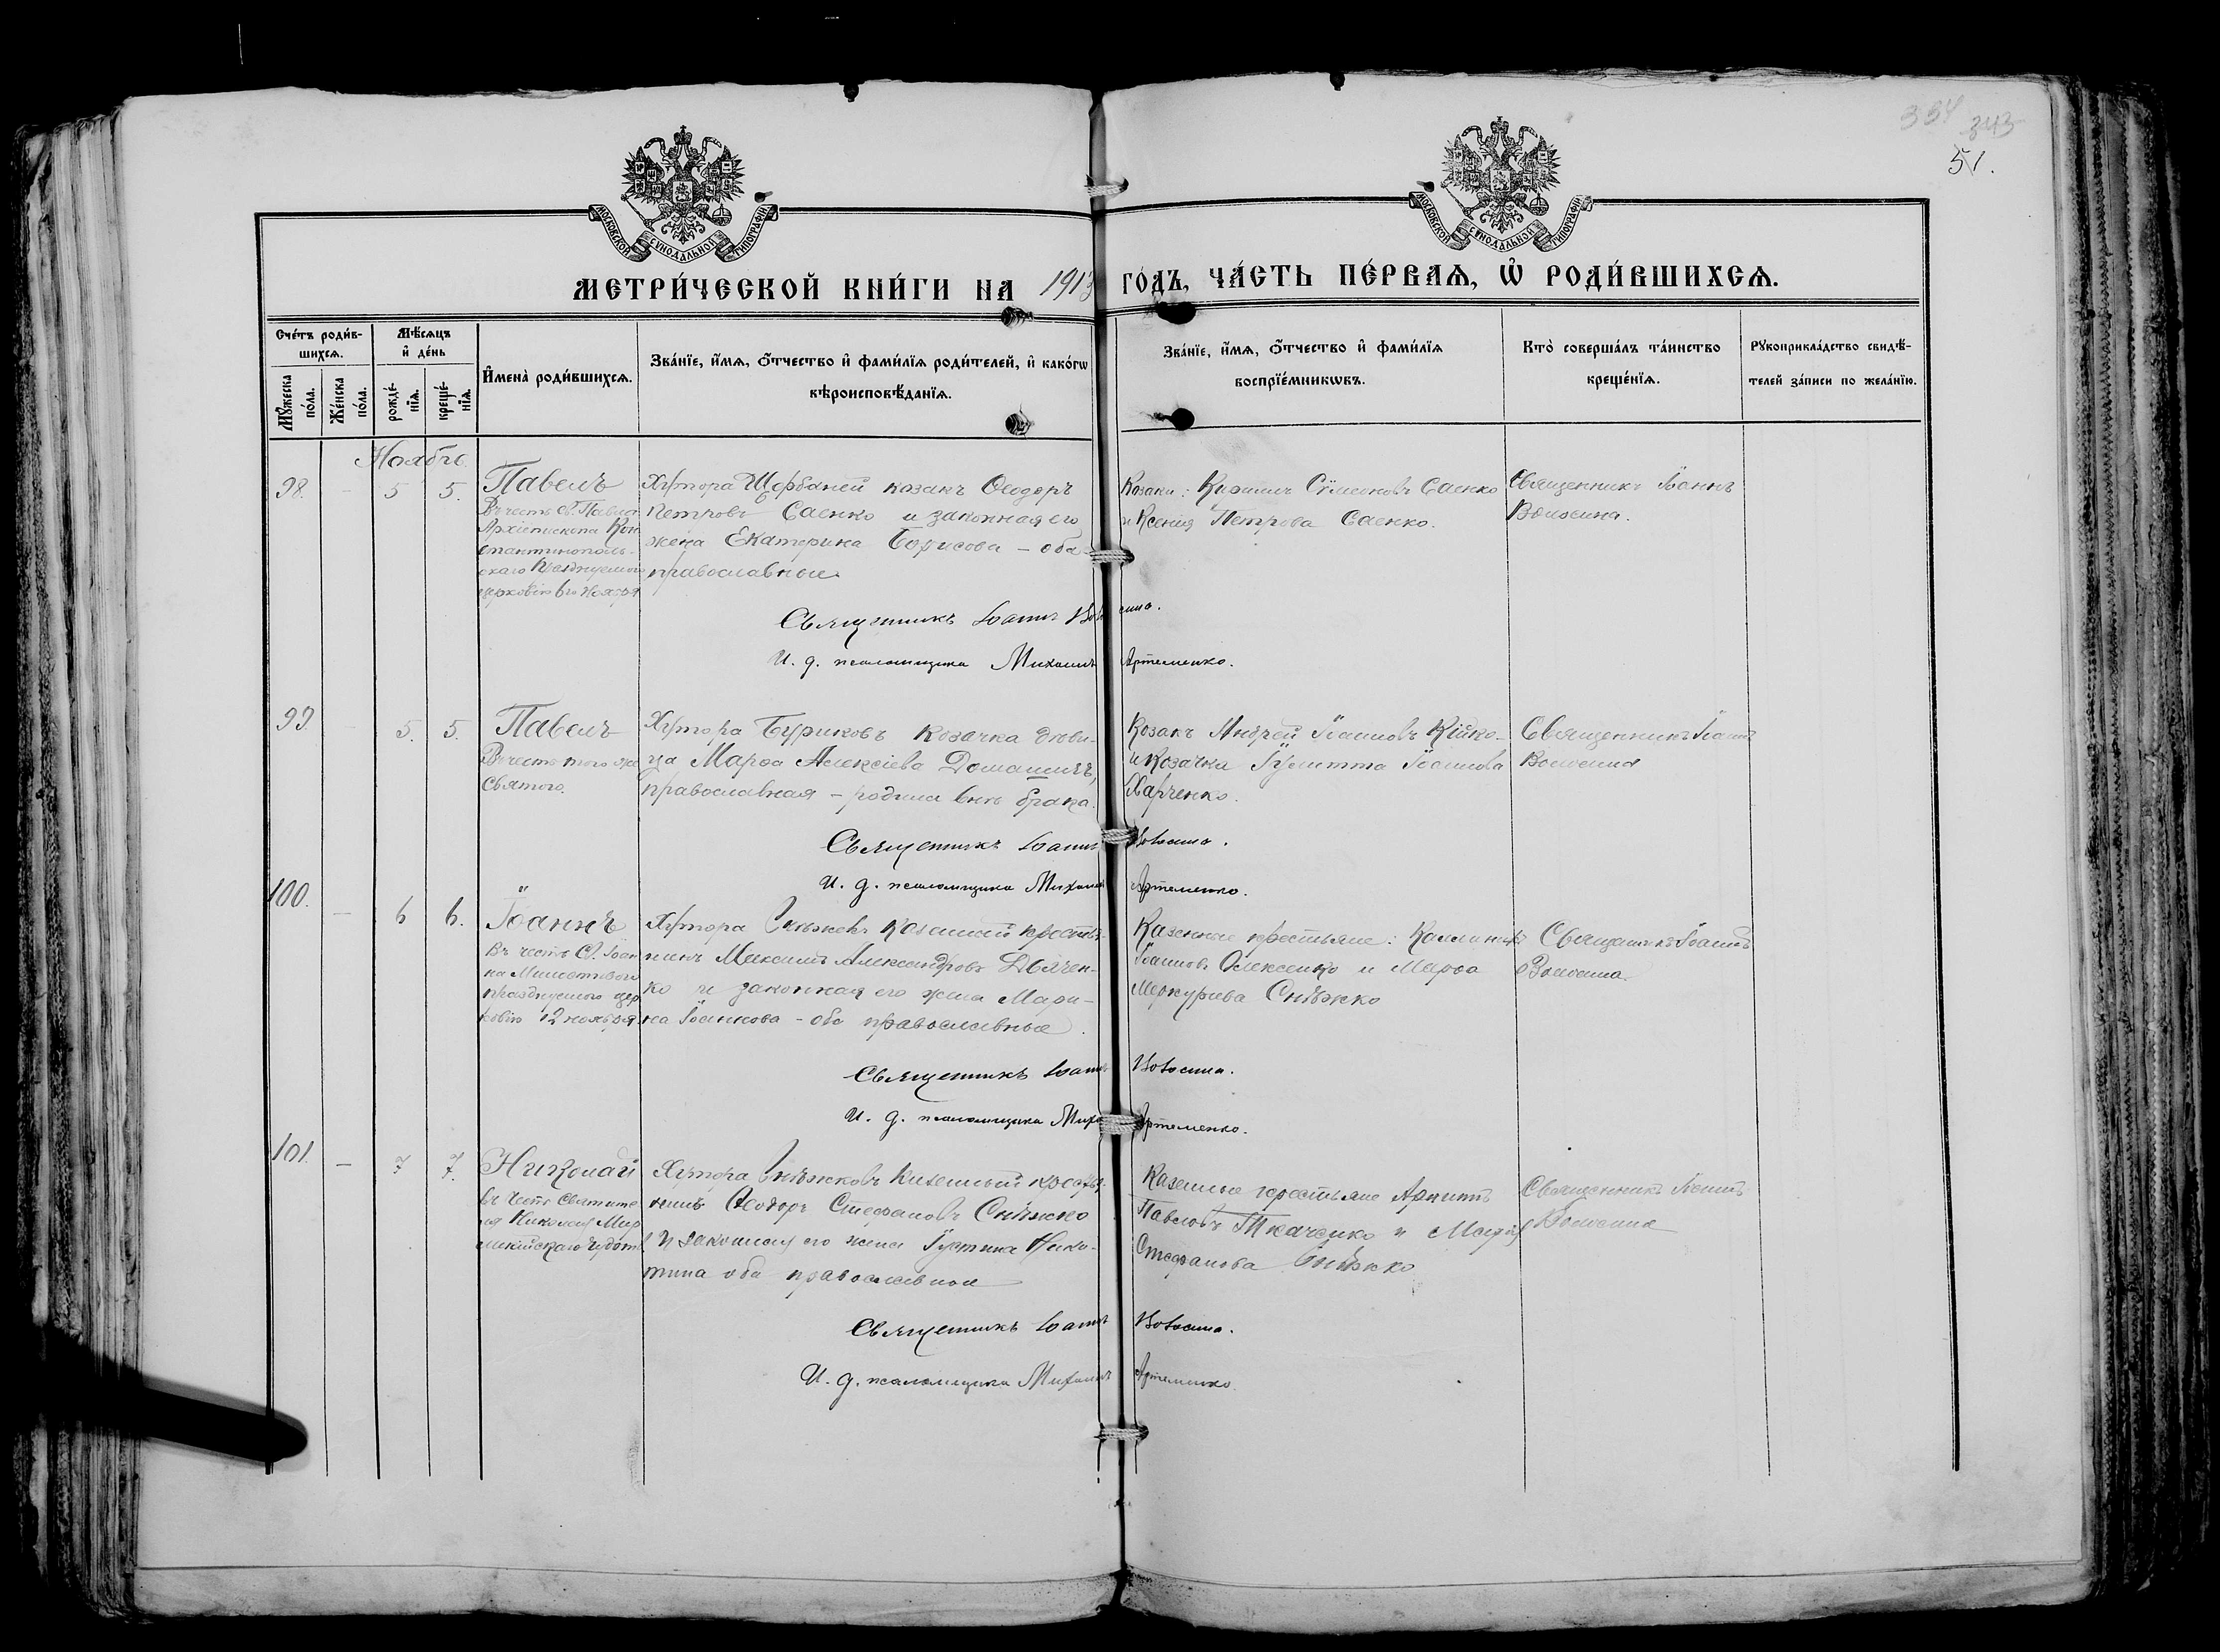 334 343
51.
МОСКОВСКОЙ СѴНОДАЛЬНОЙ ТИПОГРАФІИ
МОСКОВСКОЙ СѴНОДАЛЬНОЙ ТИПОГРАФІИ
МЕТРИ́ЧЕСКОЙ КНИ́ГИ НА 1913 ГО́ДЪ, ЧА́СТЬ ПЕ́РВАѦ, Ѿ РОДИ́ВШИХСѦ.
Сче́тъ роди́в-
шихсѧ.
Мꙋ́жеска по́ла.
Же́нска по́ла.
Мѣ́сѧцъ
и҆ де́нь
рожде́-
нїѧ.
креще́-
нїѧ.
И҆мена̀ роди́вшихсѧ.
Зва́нїе, и҆́мѧ, ѻ҆́тчество и҆ фами́лїѧ роди́телей, и҆ како́гѡ
вѣроисповѣ́данїѧ.
Зва́нїе, и҆́мѧ, ѻ҆́тчество и҆ фами́лїѧ
воспрїе́мникѡвъ.
Кто̀ соверша́лъ та́инство
креще́нїѧ.
Рꙋкоприкла́дство свидѣ́-
телей за́писи по жела́нїю.
Ноябрь
98. - 5 5.
Павелъ
Въ честь св. Павла
Архіепископа Кон
стантинополь-
скаго празднуемого
церковію 6го Ноября
Хутора Щербаней козакъ Ѳеодоръ
Петровъ Саенко и законная его
жена Екатерина Борисова - оба
православные
Козаки: Сѵмеоновъ Саенко
и Ксенія Петрова Саенко.
Священникъ Іоаннъ
Волосина.
Священникъ Іоаннъ Волосина.
И. д. псаломщика Михаилъ Артеменко.
99. - 5. 5.
Павелъ
Въ честь того же
Святого.
Хутора Буриковъ козачка дѣви-
ца Марѳа Алексіева
православная - родила внѣ брака.
Козакъ Андрей Іоанновъ Кійко
и козачка Іулитта Іоаннова
Харченко.
Священникъ Іоаннъ
Волосина
Священникъ Іоаннъ Волосина.
И. д. псаломщика Михаилъ Артеменко.
100. - 6 6.
Іоаннъ
Въ честь Св. Іоан
на Милостивого
празднуемого цер
ковію 12 ноября
Хутора Снѣжковъ казенный крестья-
нинъ Максимъ Александровъ Дьячен-
ко и законная его жена Мари-
на Іоаннова - оба православные.
Казенные крестьяне: Каллиникъ
Іоанновъ Олексенко и Марѳа
Меркурьева Снѣжко
Священникъ Іоаннъ
Волосина.
Священникъ Іоаннъ Волосина.
И. д. псаломщика Михаилъ Артеменко.
101. - 7 7.
Николай
въ честь Святите
ля Николая Мир
ликійскаго Чудотв.
Хутора Снѣжковъ казенный крестья-
нинъ Ѳеодоръ Стефановъ Снѣжко
и законная его жена Іустина Ники-
тина оба православные
Казенные крестьяне
Павловъ Ткаченко и Марѳа
Стефанова Снѣжко
Священникъ Іоаннъ
Волосина
Священникъ Іоаннъ Волосина.
И. д. псаломщика Михаилъ Артеменко.